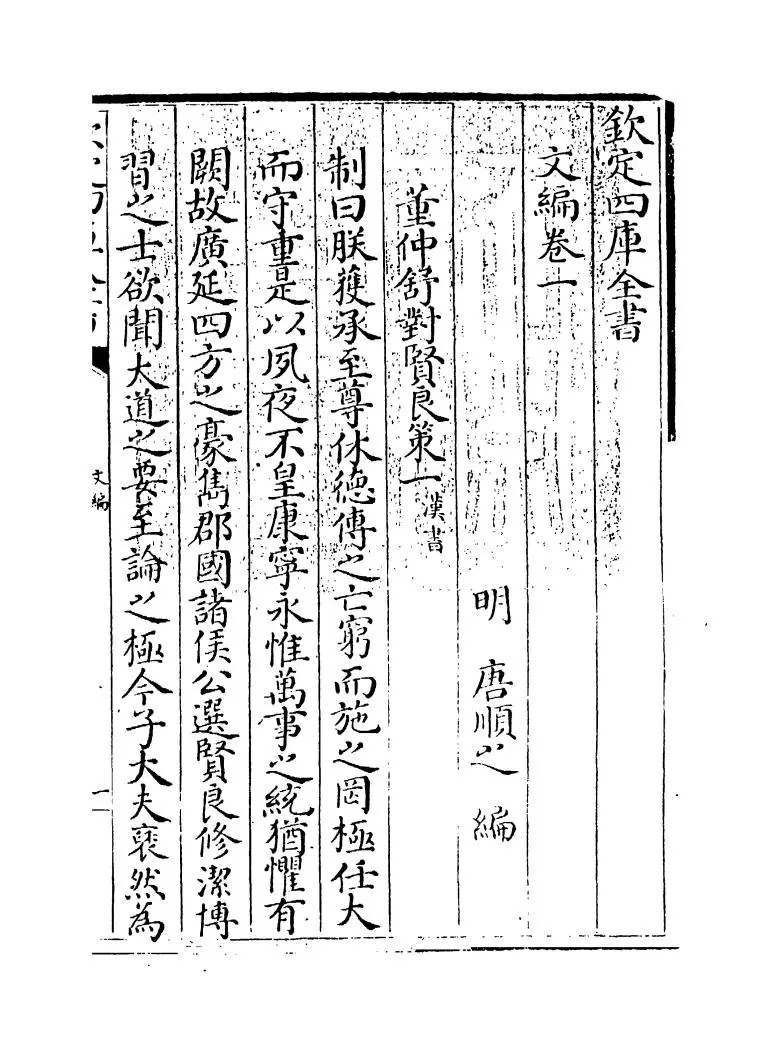 欽定四庫全書
文編卷一
明 唐順之 編
董仲舒對賢良策一漢書
制曰朕獲承至尊休德傳之亡窮而施之罔極任大
而守重是以夙夜不皇康寧永惟萬事之統猶懼有
闕故廣延四方之豪儁郡國諸侯公選賢良修潔博
習之士欲聞大道之要至論之極今子大夫裒然為
文編
一